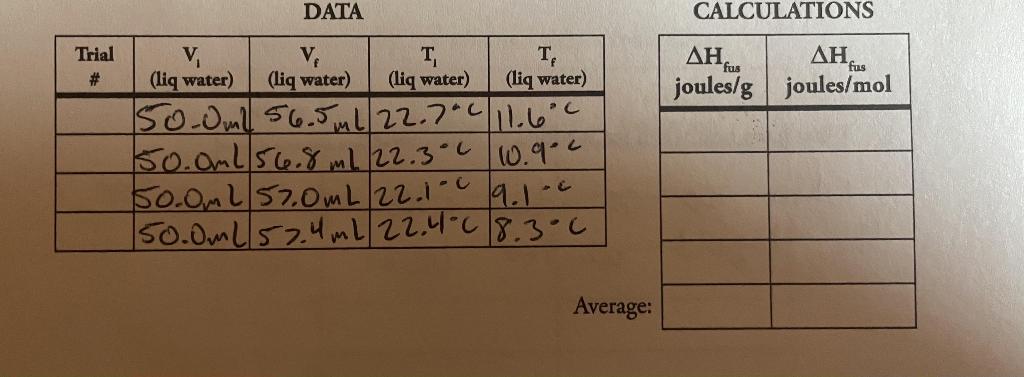 DATA
CALCULATIONS
Trial # V₁ (liq water) V_f (liq water) T₁ (liq water) T_f (liq water)
ΔH_fus joules/g ΔH_fus joules/mol
50.0mL 56.5mL 22.7°C 11.6°C
50.0mL 56.8mL 22.3°C 10.9°C
50.0mL 57.0mL 22.1°C 9.1°C
50.0mL 57.4mL 22.4°C 8.3°C
Average: